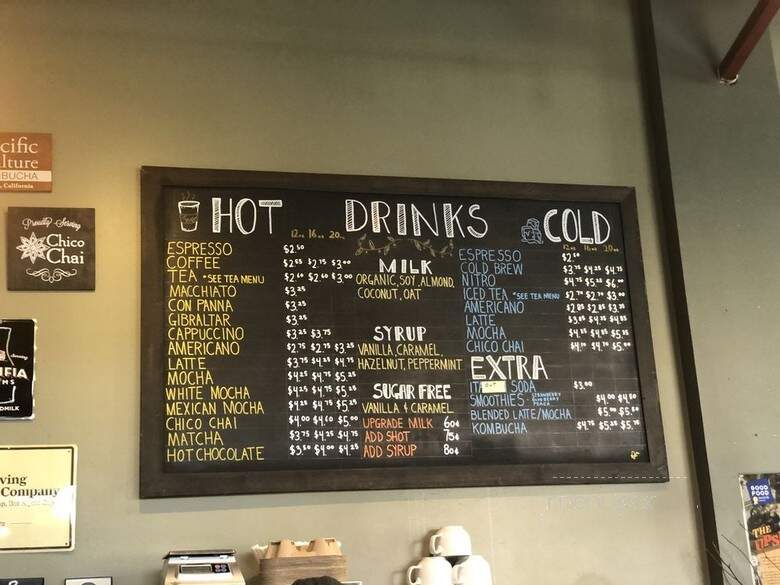 cific
lture
BUCHA
California
Proudly Serving
Chico
Chai
FIA
DMILK
ving
Company
HOT DRINKS COLD
12oz 16oz 20oz
ESPRESSO $2.50
COFFEE $2.55 $2.75 $3.00
TEA *SEE TEA MENU $2.60 $2.60 $3.00
MACCHIATO $3.25
CON PANNA $3.25
GIBRALTAR $3.25
CAPPUCCINO $3.25 $3.75
AMERICANO $2.75 $2.75 $3.25
LATTE $3.75 $4.25 $4.75
MOCHA $4.25 $4.75 $5.25
WHITE MOCHA $4.25 $4.75 $5.25
MEXICAN MOCHA $4.25 $4.75 $5.25
CHICO CHAI $4.00 $4.50 $5.00
MATCHA $3.75 $4.25 $4.75
HOT CHOCOLATE $3.50 $4.00 $4.25
MILK
ORGANIC, SOY, ALMOND,
COCONUT, OAT
SYRUP
VANILLA, CARAMEL,
HAZELNUT, PEPPERMINT
SUGAR FREE
VANILLA & CARAMEL
UPGRADE MILK 60¢
ADD SHOT 75¢
ADD SYRUP 80¢
12oz 16oz 20oz
ESPRESSO $2.50
COLD BREW $3.75 $4.25 $4.75
NITRO $4.75 $5.25 $6.00
ICED TEA *SEE TEA MENU $2.70 $2.70 $3.00
AMERICANO $2.85 $2.85 $3.35
LATTE
MOCHA
CHICO CHAI
EXTRA
SODA $3.00
SMOOTHIES - STRAWBERRY
PEACH
$4.00 $4.50
BLENDED LATTE/MOCHA $5.00 $5.50
KOMBUCHA $4.75 $5.25 $5.75
GOOD
FOOD
THE
UPS